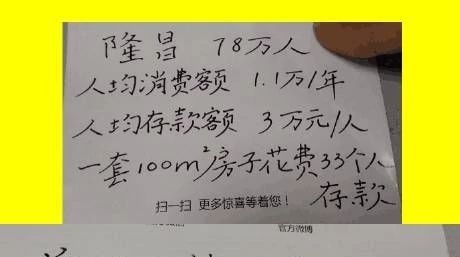 隆昌 78万人
人均消费额 1.1万/年
人均存款额 3万元/人
一套100m²房子花费33个人
存款
扫一扫 更多惊喜等着您！
官方微博